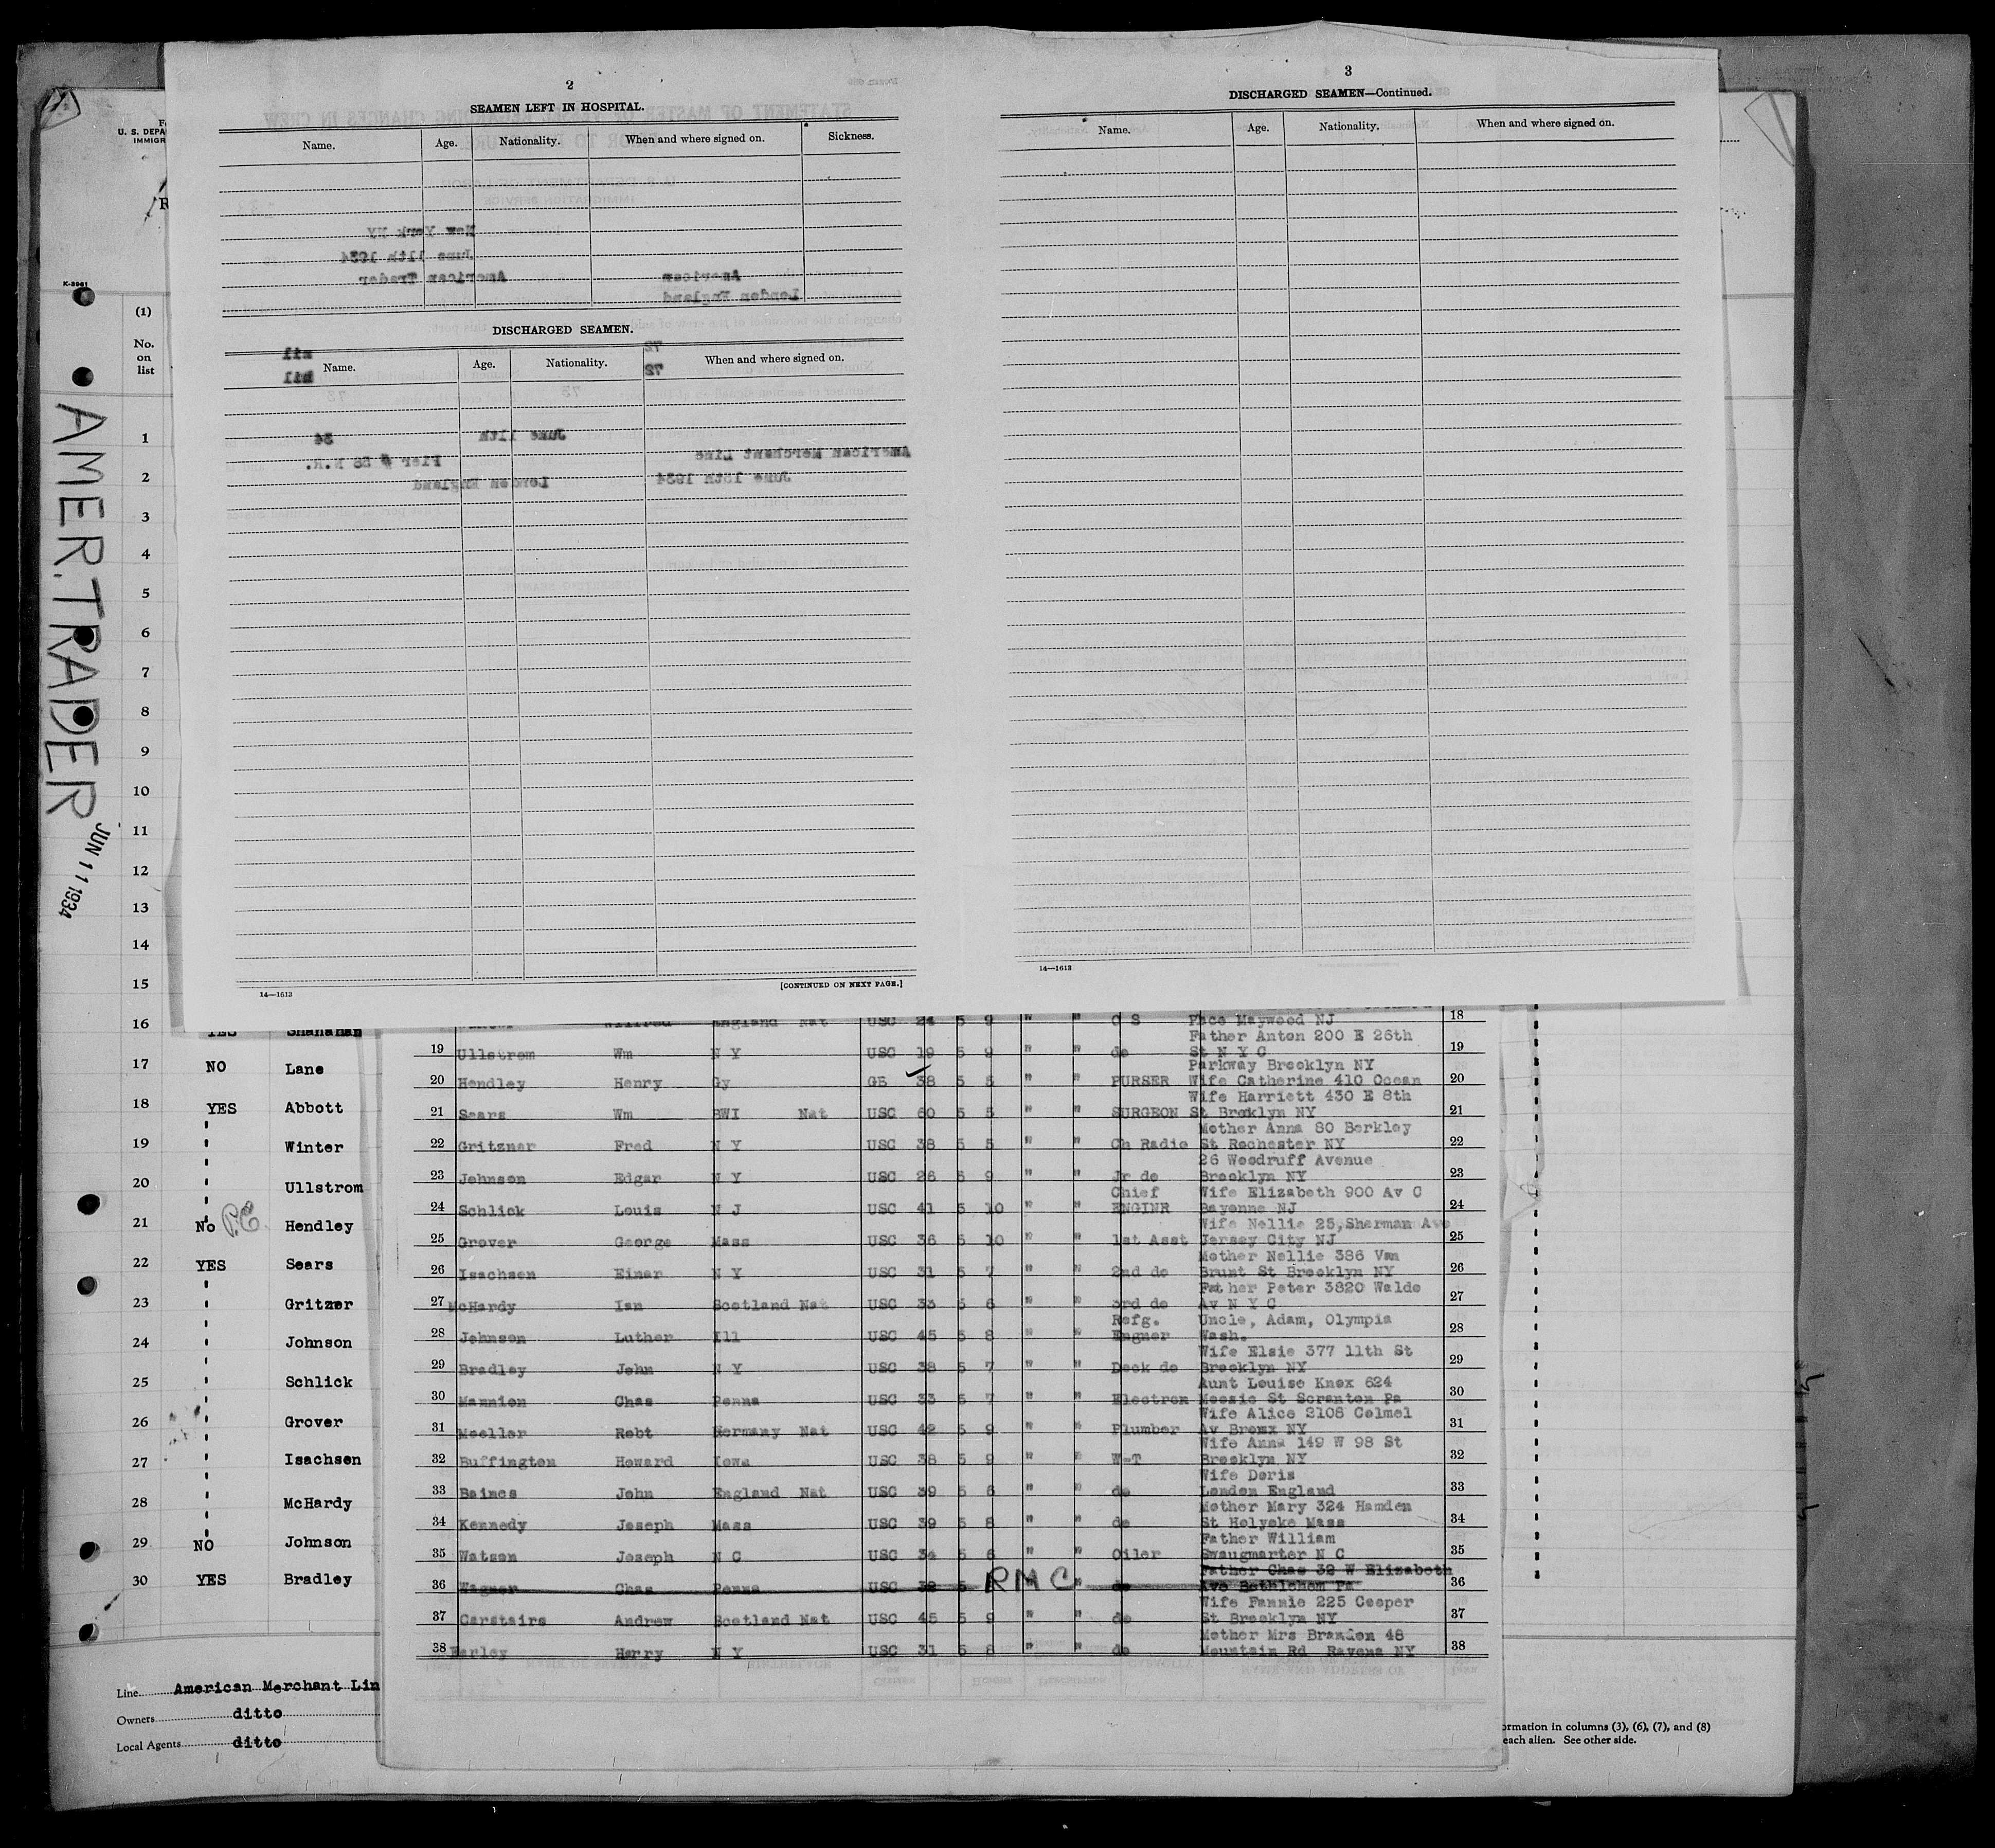 2
SEAMEN LEFT IN HOSPITAL.
Name. Age. Nationality. When and where signed on. Sickness.
New York NY
June 11th 1934
American Trader American
London England
DISCHARGED SEAMEN.
nil 72
Name. Age. Nationality. When and where signed on.
nil 72
34 June 11th
Pier # 58 N.R. American Merchant Line
London England June 15th 1934
14—1613 [CONTINUED ON NEXT PAGE.]
3
DISCHARGED SEAMEN—Continued.
Name. Age. Nationality. When and where signed on.
14—1613
U. S. DEPA
IMMIGR
K-3961
(1)
No.
on
list
AMER. TRADER
JUN 11 1934
1
2
3
4
5
6
7
8
9
10
11
12
13
14
15
16 YES Shanahan
17 NO Lane
18 YES Abbott
19 Winter
20 Ullstrom
21 No P.E. Hendley
22 YES Sears
23 Gritzner
24 Johnson
25 Schlick
26 Grover
27 Isachsen
28 McHardy
29 NO Johnson
30 YES Bradley
Line American Merchant Lin
Owners ditto
Local Agents ditto
Wilfred England Nat USC 24 5 9 " " O S Face Maywood NJ 18
Father Anton 200 E 26th
19 Ullstrom Wm N Y USC 19 5 9 " " do St N Y C 19
Parkway Brooklyn NY
20 Hendley Henry Gy GB 38 5 5 " " PURSER Wife Catherine 410 Ocean 20
Wife Harriett 430 E 8th
21 Sears Wm BWI Nat USC 60 5 5 " " SURGEON St Brooklyn NY 21
Mother Anna 80 Berkley
22 Gritzner Fred N Y USC 38 5 5 " " Ch Radio St Rochester NY 22
26 Woodruff Avenue
23 Johnson Edgar N Y USC 26 5 9 " " Jr do Brooklyn NY 23
Chief Wife Elizabeth 900 Av C
24 Schlick Louis N J USC 41 5 10 " " ENGINR Bayonne NJ 24
Wife Nellie 25, Sherman Ave
25 Grover George Mass USC 36 5 10 " " 1st Asst Jersey City NJ 25
Mother Nellie 386 Van
26 Isachsen Einar N Y USC 31 5 7 " " 2nd do Brunt St Brooklyn NY 26
Father Peter 3820 Waldo
27 McHardy Ian Scotland Nat USC 33 5 6 " " 3rd do Av N Y C 27
Refg. Uncle, Adam, Olympia
28 Johnson Luther Ill USC 45 5 8 " " Engner Wash. 28
Wife Elsie 377 11th St
29 Bradley John N Y USC 38 5 7 " " Deck do Brooklyn NY 29
Aunt Louise Knox 624
30 Mannion Chas Penna USC 33 5 7 " " Electron Moosic St Scranton Pa 30
Wife Alice 2108 Colmel
31 Moeller Robt Germany Nat USC 42 5 9 " " Plumber Av Bronx NY 31
Wife Anna 149 W 98 St
32 Buffington Howard Iowa USC 38 5 9 " " W-T Brooklyn NY 32
Wife Doris
33 Baines John England Nat USC 39 5 6 " " do London England 33
Mother Mary 324 Hamden
34 Kennedy Joseph Mass USC 39 5 8 " " do St Holyoke Mass 34
Father William
35 Watson Joseph N C USC 34 5 6 " " Oiler Swaugmarter N C 35
Father Chas 32 W Elizabeth
36 Wagner Chas Penna USC 32 5 RMC " do Ave Bethlehem Pa 36
Wife Fannie 225 Cooper
37 Carstairs Andrew Scotland Nat USC 45 5 9 " " do St Brooklyn NY 37
Mother Mrs Brandon 48
38 Farley Harry N Y USC 31 5 8 " " do Mountain Rd Ravena NY 38
ormation in columns (3), (6), (7), and (8)
each alien. See other side.